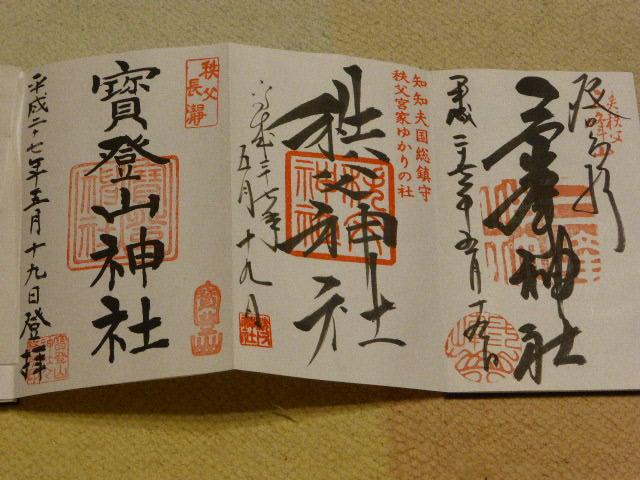 三峯神社
平成二十七年五月十九日
知知夫国総鎮守
秩父宮家ゆかりの社
秩父神社
平成二十七年
五月十九日
秩父
長瀞
寶登山神社
平成二十七年五月十九日登拝